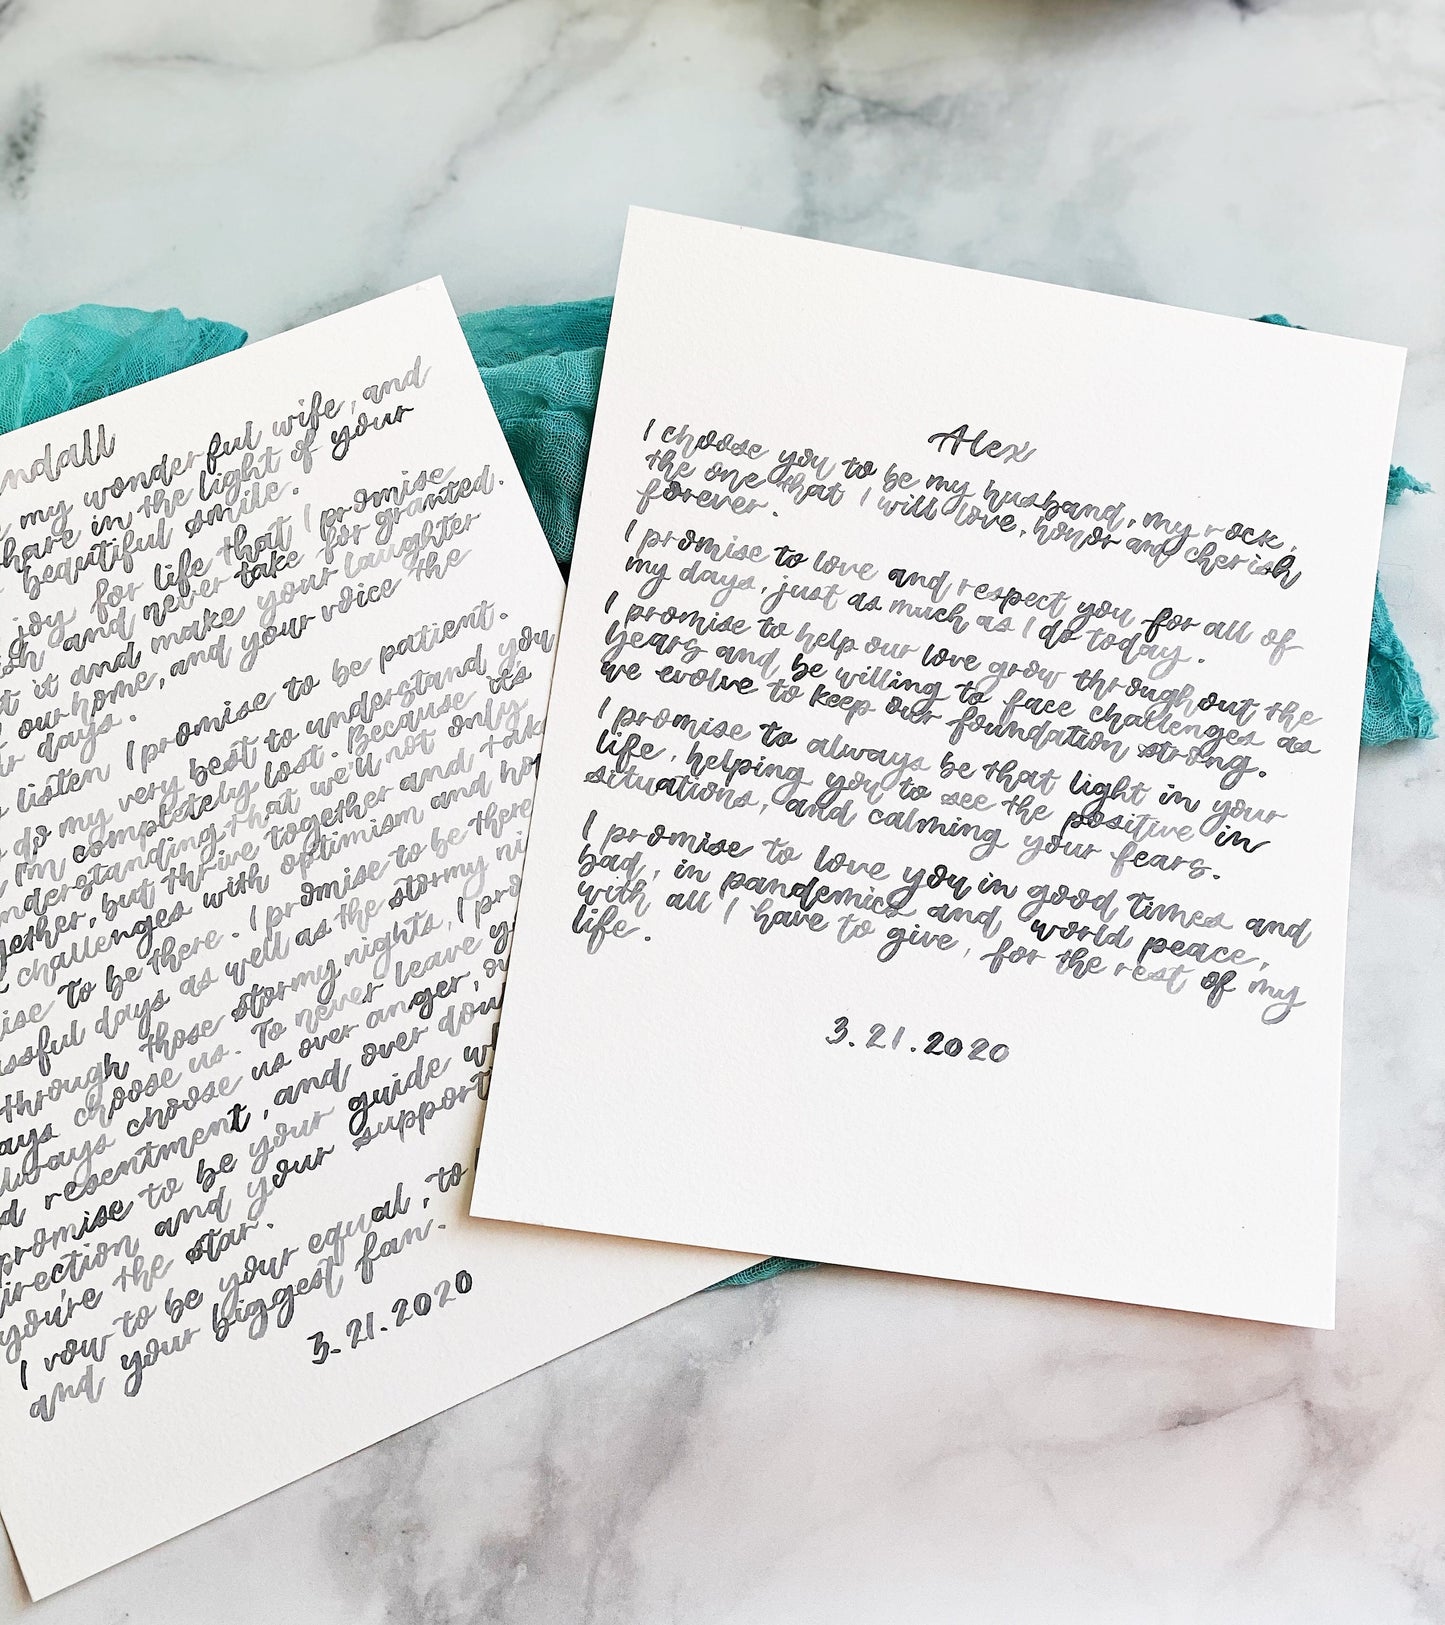 ndall
my wonderful wife, and
share in the light of your
beautiful smile.
joy for life that I promise
and never take for granted.
it and make your laughter
our home, and your voice the
days.
listen I promise to be patient.
do my very best to understand you
I'm completely lost. Because it's
understanding that we'll not only
together, but thrive together and take
challenges with optimism and
to be there. I promise to be there
days as well as the stormy
through those stormy nights, I
choose us. To never leave
always choose us over anger,
resentment, and over
promise to be your guide
direction and your support
you're the star.
I vow to be your equal, to
and your biggest fan.
3.21.2020
Alex
I choose you to be my husband, my rock,
the one that I will love, honor and cherish
forever.
I promise to love and respect you for all of
my days, just as much as I do today.
I promise to help our love grow throughout the
years and be willing to face challenges as
we evolve to keep our foundation strong.
I promise to always be that light in your
life, helping you to see the positive in
situations, and calming your fears.
I promise to love you in good times and
bad, in pandemics and world peace,
with all I have to give, for the rest of my
life.
3.21.2020